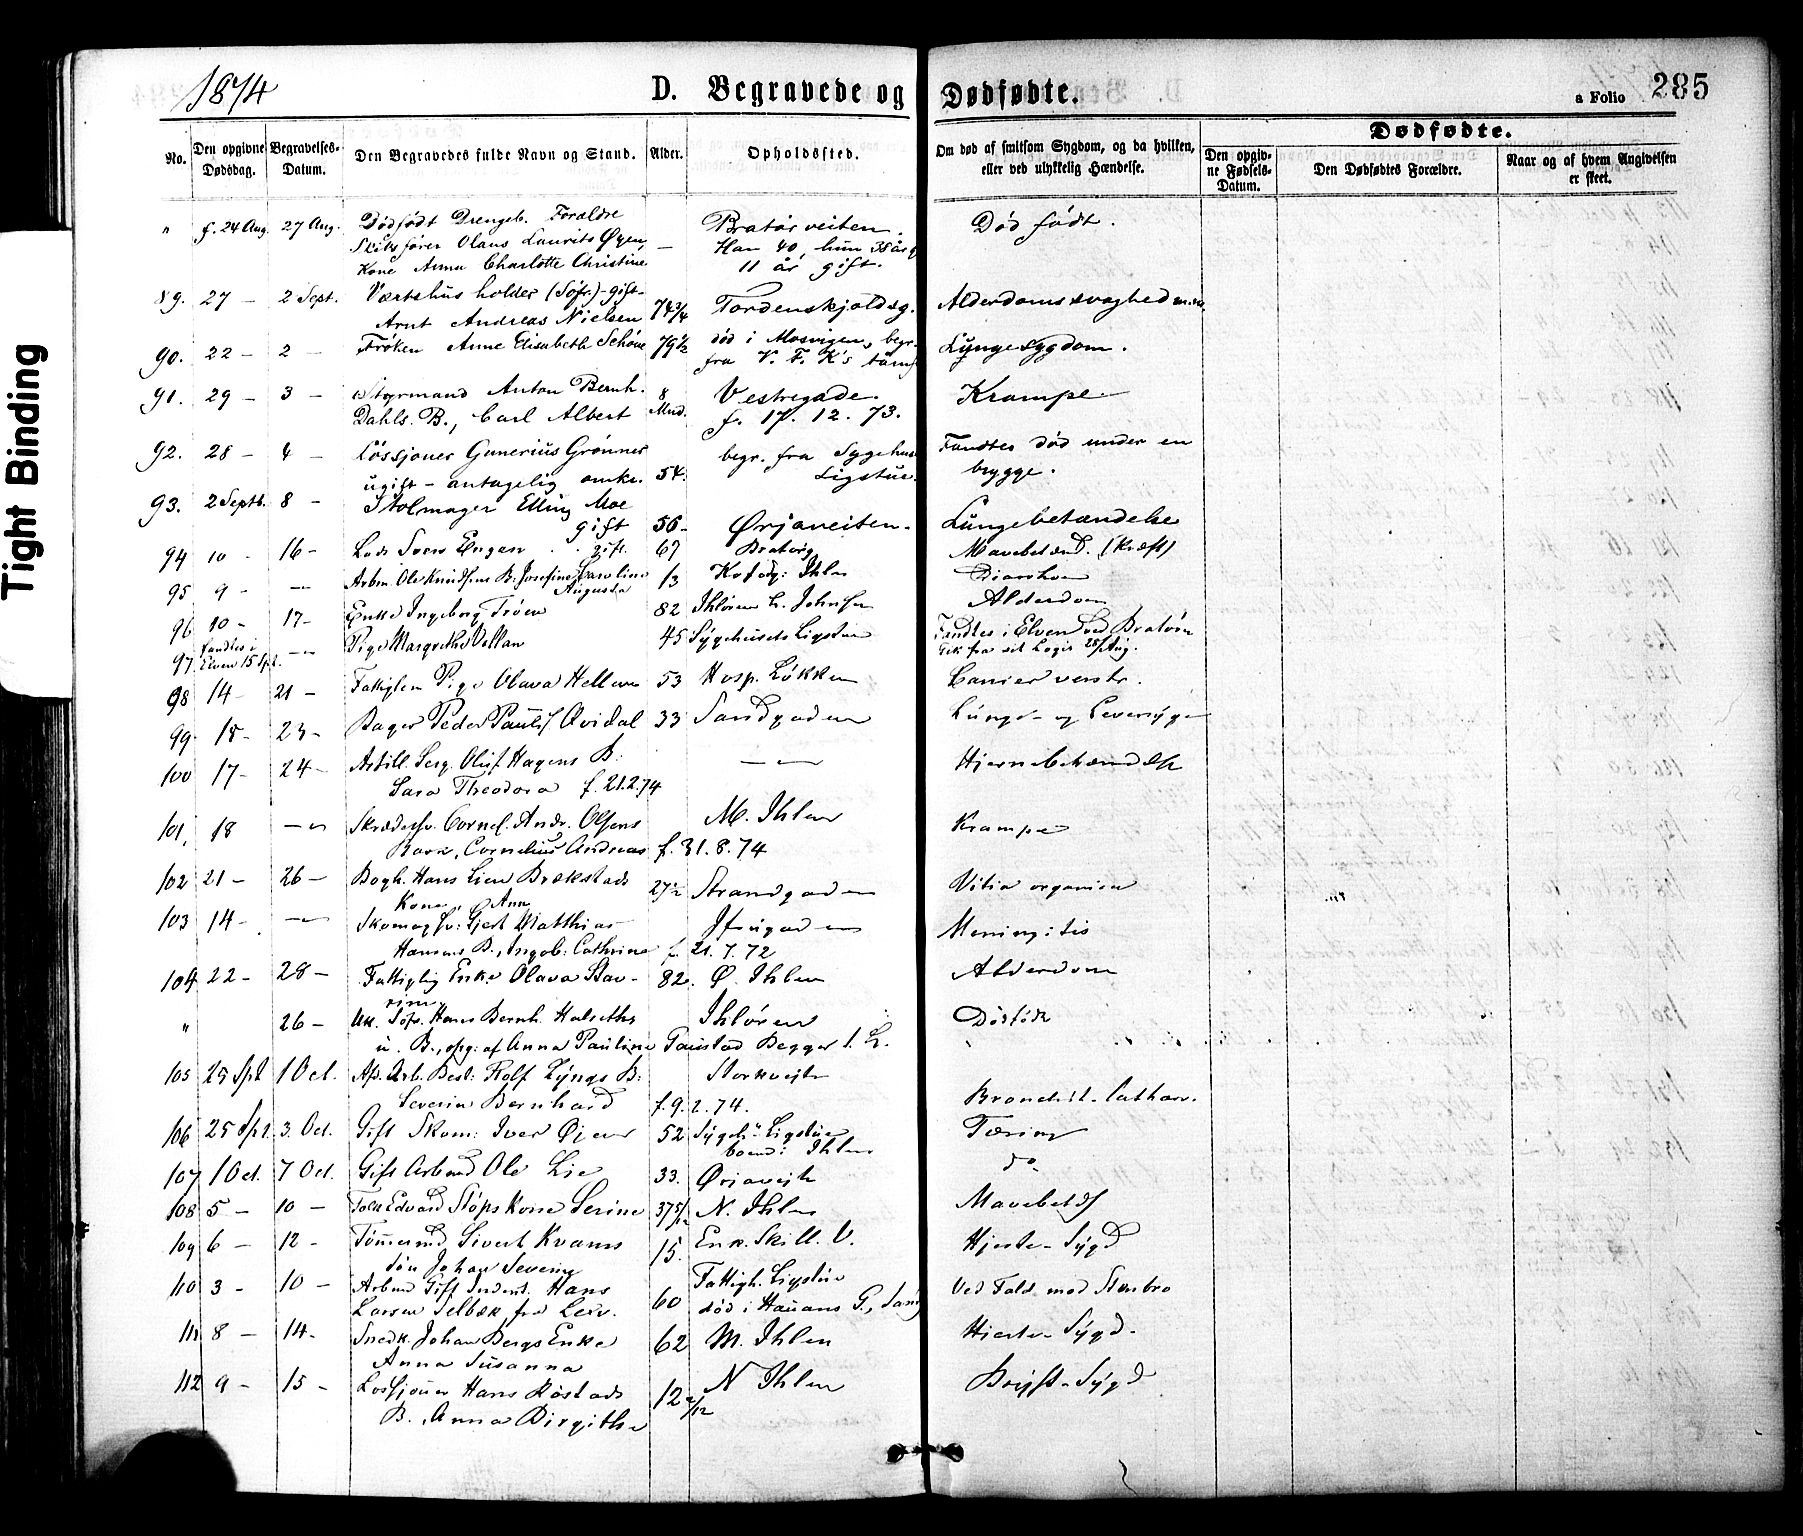 Tight Binding
1874 D. Begravede og Dødfødte. a Folio 285
Dødfødte.
No. Den opgivne Dødsdag. Begravelses-Datum. Den Begravedes fulde Navn og Stand. Alder. Opholdssted. Om død af smitsom Sygdom, og da hvilken, eller ved ulykkelig Hændelse. Den opgivne Fødsels-Datum. Den Dødfødtes Forældre. Naar og af hvem Angivelsen er skeet.
" f. 24 Aug. 27 Aug. Dødfødt Drengeb. Forældre Bratørveiten. Død født.
Skibsfører Olaus Laurits Øyen, — Han 40, hun 38 år g
Kone Anna Charlotte Christine 11 år gift.
89. 27 — 2 Sept. Værtshusholder (Søfr.) - gift - Tordenskjoldsg. Alderdomssvaghed m.m.
Arnt Andreas Nielsen 74 3/4
90. 22 — 2 — Frøken Anne Elisabeth Schöne 79 1/2 død i Mosvigen, begr. Lungesygdom.
fra V. F. K's
91. 29 — 3 — Styrmand Anton Bernh. 8 Vestregade. Krampe.
Dahls B., Carl Albert Mnd. f. 17. 12. 73.
92. 28 — 4 — Løssjouer Gunerius Grønner begr. fra Sygehus Fandtes død under en
ugift - antagelig 54. Ligstue. brygge.
93. 2 Septb. 8 — Stolmager Elling Moe
gift 56 - Ørjaveiten. Lungebetændelse
94 10 - 16 - Lods Sven Engen gift. 67 Bratørg Mavebetænd. (Kræft)
95 9 - — Arbm. Ole Knudsens B. Josefine Caroline 13 Ihlen Diarrhoe
Augusta
96 10 - 17 - Enke Ingeborg Trøen 82 Ihløren h. Johnsen Alderdom
97 fandtes i — Pige Margrethe Vollan 45 Sygehusets Ligstue Fandtes i Elven ved Bratøren
Elven 15 Spt. Gik fra sit Logis 25/Aug.
98 14 - 21 - Fattiglem Pige Olava Hellem 53 Hosp. Løkken
99 15 - 23 - Bager Peder Pauls. Qvidal 33 Sandgaden Lunge- og Leversyge
100 17 - 24 - Artill. Serg. Oluf Hagens B: — Hjernebetændelse
Sara Theodora f. 21.2.74
101. 18 — Skrædersv. Cornel. Andr. Olsens M. Ihlen Krampe
Barn, Cornelius Andreas f. 31. 8. 74
102 21 - 26 - Bogh. Hans Lien Brækstads 27 1/2 Strandgaden Vitia organica
Kone, Ann
103 14 - — Skomagsv: Gjert Matthias Meningitis
Hansens B., Ingeb: Cathrine f. 21. 7. 72
104 22 - 28 - Fattiglig Enke Olava Sav- 82. Ø. Ihlen Alderdom
rine
" 26 - Uk. Søfr. Hans Bernh. Halseths Ihløren Dødfødt
u. B., opg: af Anna Pauline Gaustad Begger l. L.
105 25 Spt 1 Oct. Best: Rolf Lyngs B: Storkveiten
Severin Bernhard f. 9. 2. 74. Bronchit. Cathar.
106 25 Spt. 3. Oct. Gift Skom: Iver Øjen 52 Sygeh. Ligstue Tæring
boend: Ihlen
107 1 Oct. 7 Oct. Gift Arbmd Ole Lie 33. Ørjaveit do
108 5 - 10 - Edvard Støps Kone Serine 37 5/12 N. Ihlen
109 6 - 12 - Tømmermd Sivert Kvams 15. Enk. Skill. V. Hjerte-Sygd
søn Johan Severin
110 3 - 10 - Arbmd Gift Hans Fattigh. Ligstue Ved Fald mod Stenbro
Larsen Selbæk fra 60 død i
111 8 - 14 - Snedk. Johan Bergs Enke 62 M. Ihlen Hjerte-Sygd.
Anna Susanna
112 9 - 15 - Løssjouer Hans Røstads 12 2/12 N Ihlen Bryst-Sygd
B., Anna Birgitha